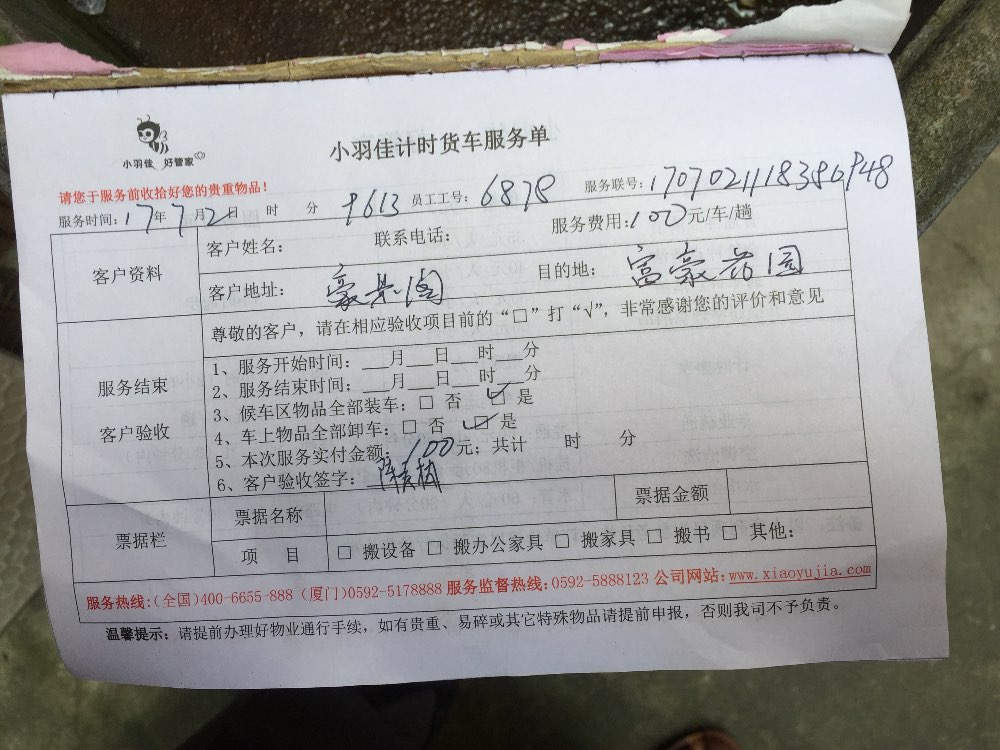 小羽佳 好管家
小羽佳计时货车服务单
请您于服务前收拾好您的贵重物品!
服务时间:17年7月2日 时 分 9613 员工工号:6878 服务联号:
客户资料
客户姓名: 联系电话: 服务费用:100元/车/趟
客户地址: 目的地:富豪花园
服务结束
客户验收
尊敬的客户,请在相应验收项目前的“□”打“√”,非常感谢您的评价和意见
1、服务开始时间:___月___日___时___分
2、服务结束时间:___月___日___时___分
3、候车区物品全部装车:□ 否 ☑ 是
4、车上物品全部卸车:□ 否 ☑ 是
5、本次服务实付金额:100元;共计 时 分
6、客户验收签字:
票据栏
票据名称 票据金额
项 目 □ 搬设备 □ 搬办公家具 □ 搬家具 □ 搬书 □ 其他:
服务热线:(全国)400-6655-888 (厦门)0592-5178888 服务监督热线:0592-5888123 公司网站:www.xiaoyujia.com
温馨提示:请提前办理好物业通行手续,如有贵重、易碎或其它特殊物品请提前申报,否则我司不予负责。